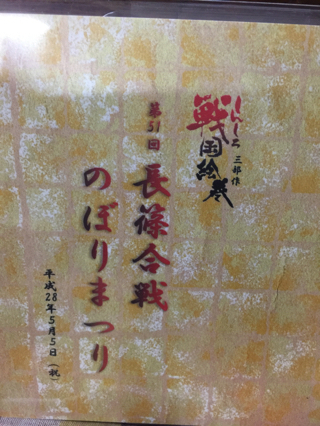 しんしろ
戦国絵巻
三部作
第51回
長篠合戦
のぼりまつり
平成28年5月5日（祝）